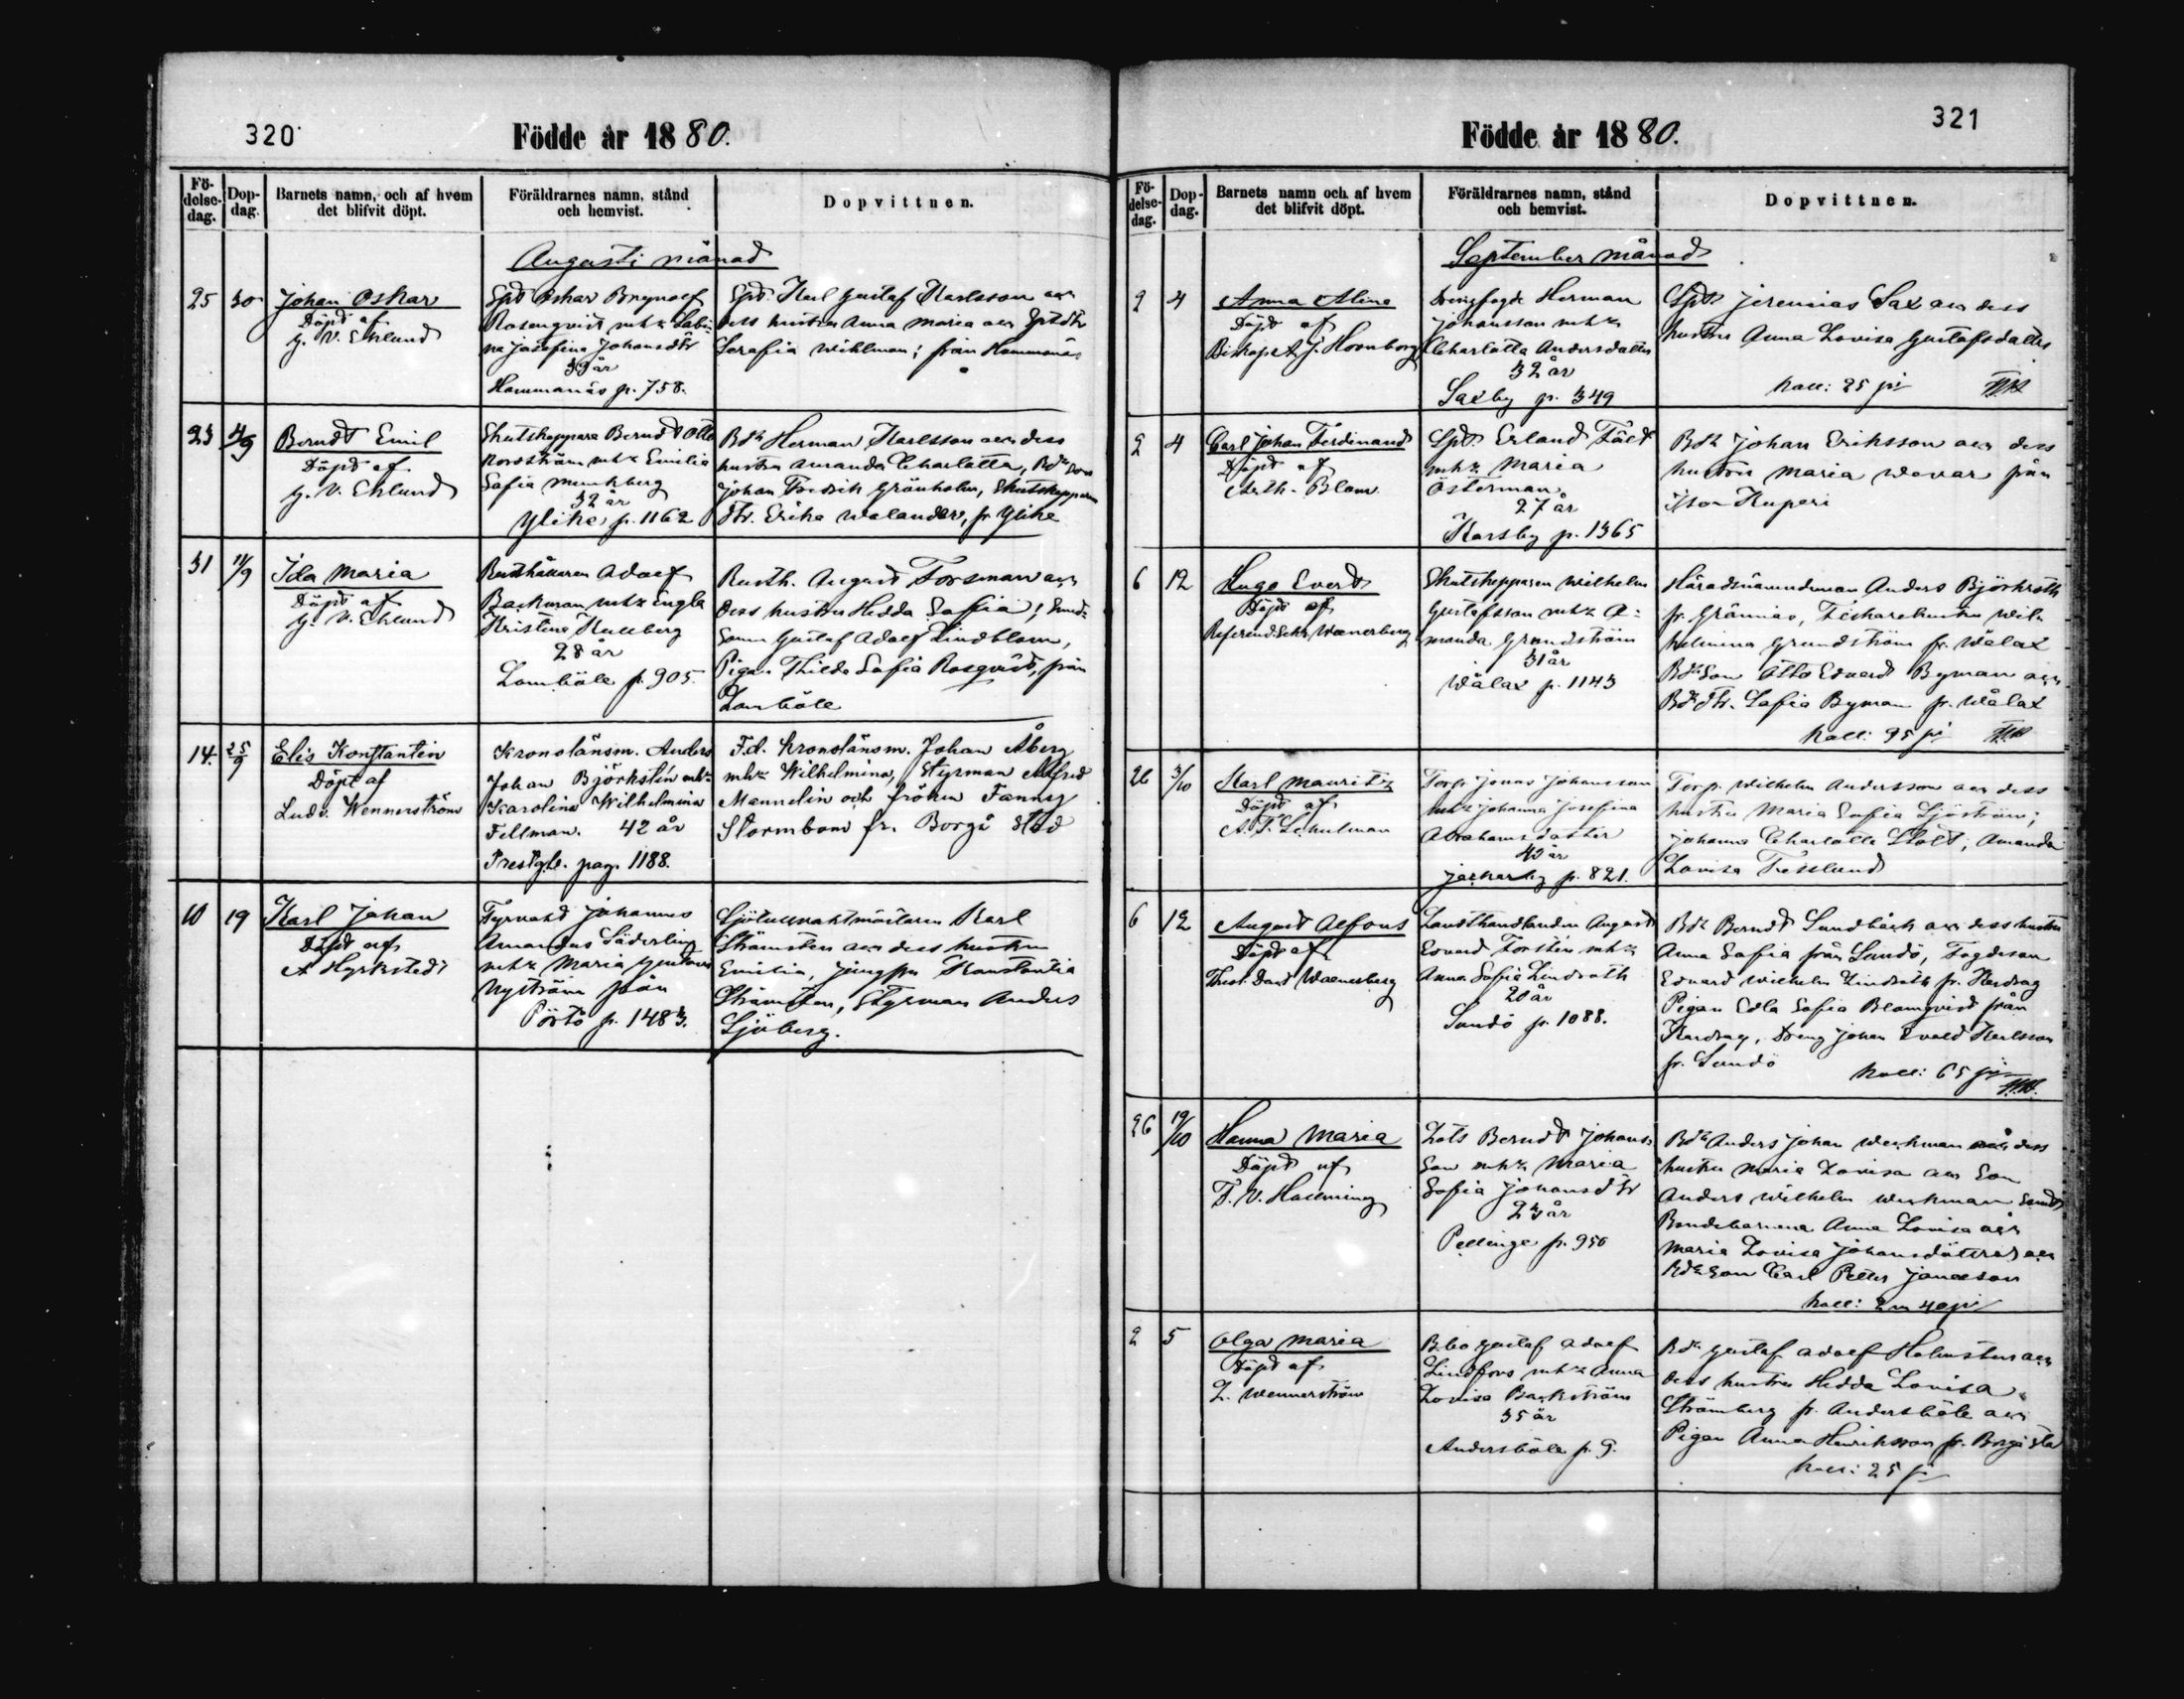 320
Födde år 1880.
Fö-
delse-
dag.
Dop-
dag.
Barnets namn, och af hvem
det blifvit döpt.
Föräldrarnes namn, stånd
och hemvist.
Dopvittnen.
Augusti månad
25
30
Johan Oskar
Döpt af
G. V. Eklund
Spt Oskar Brynolf
Rosenqvist mhr Sabi-
na Josefina Johansdtr
39 år
Hammanäs p. 758.
Spt. Karl Gustaf Karlsson och
dess hustru Anna Maria och
Serafia Wihlman; från Hammanäs
23
4/9
Berndt Emil
Döpt af
G. V. Eklund
Skutskeppare Berndt Otto
Norrström mhr Emilia
Sofia Munkberg
32 år
Ylike p. 1162
Bdn Herman Karlsson och dess
hustru Amanda Charlotta, Bdeson
Johan Fredrik Grönholm, Skutskeppare
dtr. Erika Walander, fr Ylike
31
11/9
Ida Maria
Döpt af
G. V. Eklund
Rusthållaren Adolf
Backman mhr Engla
Kristina Kullberg
28 år
Lomböle p. 905.
Rusth. August Forsman och
dess hustru Hedda Sofia;
Gustaf Adolf Lindblom,
Pigan Thilda Sofia Rosqvist, från
Lomböle
14.
25/9
Elis Konstantin
Döpt af
Ludv. Wennerström
Kronolänsm. Anders
Johan Björkstén mhr
Karolina Wilhelmina
Fellman. 42 år
Prestg. pag. 1188.
F.d. Kronolänsm. Johan Åberg
mhr Wilhelmina, Styrman Alfred
Mannelin och fröken Fanny
Stormbom fr. Borgå Stad
10
19
Karl Johan
Döpt af
A Hyrkstedt
Fyrvakt Johannes
Amandus Söderling
mhr Maria Gustava
Nyström från
Pörtö p. 1483.
Sjötullvaktmästaren Karl
Strömsten och dess hustru
Emilia, jungfru Konstantia
Strömsten, Styrman Anders
Sjöberg.
321
Födde år 1880.
Fö-
delse-
dag.
Dop-
dag.
Barnets namn och af hvem
det blifvit döpt.
Föräldrarnes namn, stånd
och hemvist.
Dopvittnen.
September månad
2
4
Anna Alina
Döpt af
Biskop A. J. Hornborg
Drengfogde Herman
Johansson mhr
Charlotta Andersdotter
32 år
Saxby p. 349
Spt Jeremias Sax och dess
hustru Anna Lovisa Gustafsdotter
koll: 25 pi
2
4
Carl Johan Ferdinand
Döpt af
Arth. Blom
Spt Erland Fält
mhr Maria
Österman
27 år
Karsby p. 1365
Bdn Johan Eriksson och dess
hustru Maria från
6
12
Hugo Evert
Döpt af
Skutskepparen Wilhelm
Gustafsson mhr A-
manda Grundström
31 år
Wålax p. 1143
Häradsnämndeman Anders Björkroth
fr. Grännäs, Fiskarehustru Wil-
helmina Grundström fr. Wålax
Bdeson Otto Edvard Byman och
Bdedtr. Sofia Byman fr. Wålax
koll: 95 pi
26
3/10
Karl Mauritz
Döpt af
A. F. Schulman
Torp. Jonas Johansson
mhr Johanna Josefina
Abrahamsdotter
40 år
Jackarby p. 821.
Torp. Wilhelm Andersson och dess
hustru Maria Sofia Sjöström;
Johanna Charlotta Stolt; Amanda
Lovisa
6
12
August Alfons
Döpt af
Landthandlanden August
Edvard Forstén mhr
Anna Sofia Lindroth
20 år
Sundö p. 1088.
Bdn Berndt Sundbäck och dess hustru
Anna Sofia från Sundö, Fogdeson
Edvard Wilhelm Lindroth fr. Kardrag
Pigan Edla Sofia Blomqvist från
Kardrag, Dreng Johan Evald Karlsson
fr. Sundö
koll: 65 pi
26
19/10
Hanna Maria
Döpt af
F. W. Hallming
Lots Berndt Johans-
son mhr Maria
Sofia Johansdtr
23 år
Pellinge p. 950
Bdn Anders Johan Weckman och dess
hustru Maria Lovisa och Son
Anders Wilhelm Weckman
Bondebarnena Anna Lovisa och
Maria Lovisa Johansdöttrar och
Bdeson Carl Petter Jansson
koll: 2 m 40 pi
2
5
Olga Maria
Döpt af
L. Wennerström
Bbo Gustaf Adolf
Lindfors mhr Anna
Lovisa Backström
35 år
Andersböle p. 9.
Bdn Gustaf Adolf Holmsten och
dess hustru Hedda Lovisa
Strömberg fr. Andersböle och
Pigan Anna Henriksson fr. Borgå stad
koll: 25 pi